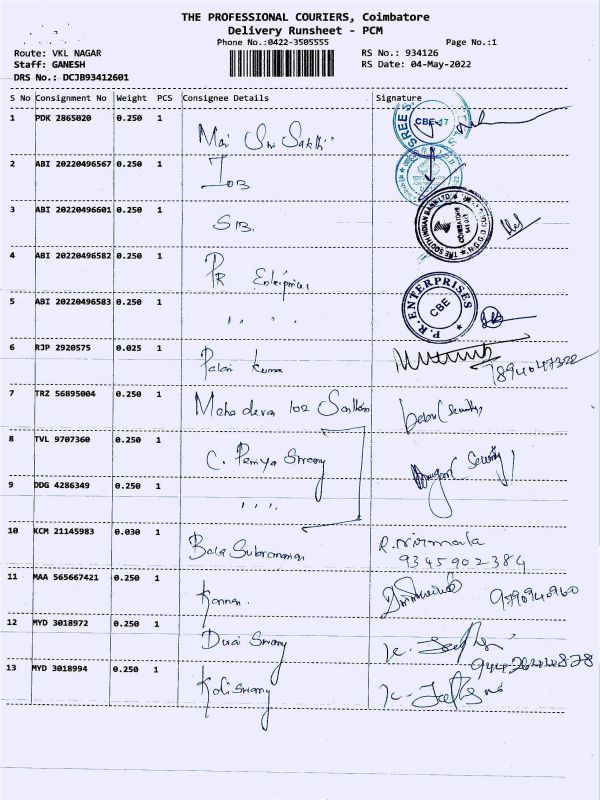 THE PROFESSIONAL COURIERS, Coimbatore
Delivery Runsheet - PCM
Phone No.:0422-3505555
Page No.:1
Route: VKL NAGAR
RS No.: 934126
Staff: GANESH
RS Date: 04-May-2022
DRS No.: DCJB93412601
S No Consignment No Weight PCS Consignee Details Signature
1 PDK 2865020 0.250 1 Mari Sri Sakthi
CBE-17
2 ABI 20220496567 0.250 1 IOB
3 ABI 20220496601 0.250 1 SIB.
THE SOUTH INDIAN BANK LTD
COIMBATORE
4 ABI 20220496582 0.250 1 PR Enterprises
5 ABI 20220496583 0.250 1 " "
P.R. ENTERPRISES
CBE
6 RJP 2920575 0.025 1 Palani Kumar
7894047322
7 TRZ 56895004 0.250 1 Mahadevan 102
(Security)
8 TVL 9707360 0.250 1 C. Periya Swamy
Security
9 DDG 4286349 0.250 1 " "
10 KCM 21145983 0.030 1 Bala Subramanian
R. Nirmala
9345902384
11 MAA 565667421 0.250 1 Kannan
12 MYD 3018972 0.250 1 Durai Swamy
13 MYD 3018994 0.250 1 Kaliswamy